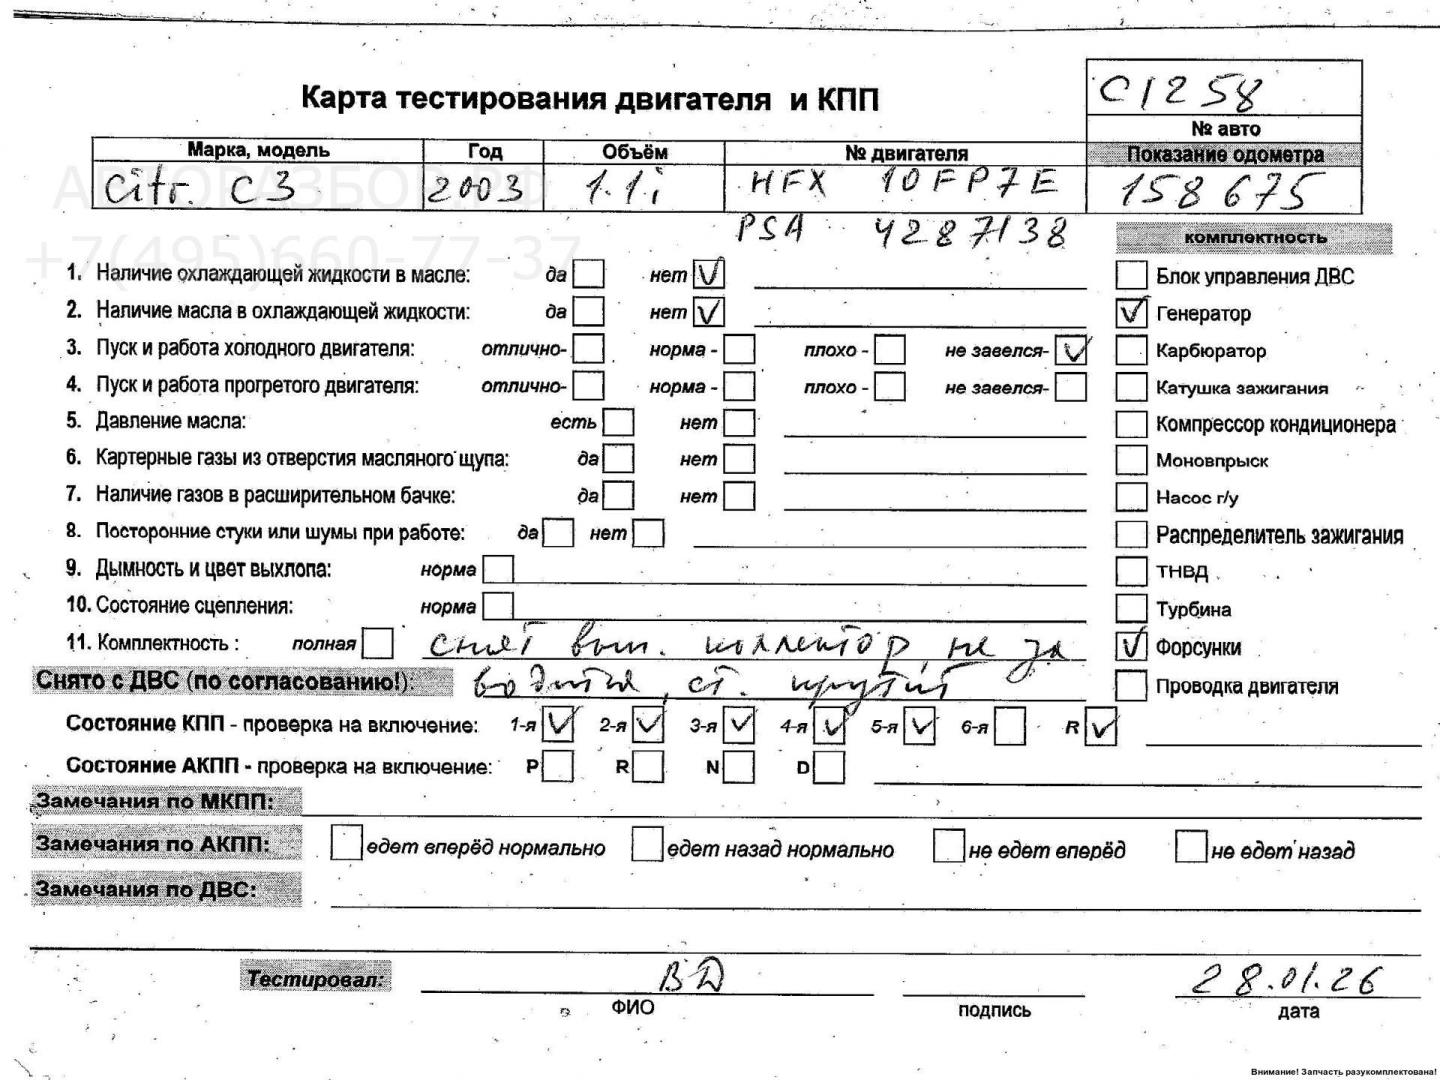 C1258
Карта тестирования двигателя и КПП
№ авто
Марка, модель Год Объём № двигателя Показание одометра
Citr. C3 2003 1.1i HFX 10FP7E 158 675
PSA 4287138
АВТОРАЗБОР.РФ
+7(495)660-77-37
комплектность
1. Наличие охлаждающей жидкости в масле: да нет Блок управления ДВС
2. Наличие масла в охлаждающей жидкости: да нет Генератор
3. Пуск и работа холодного двигателя: отлично- норма - плохо - не завелся- Карбюратор
4. Пуск и работа прогретого двигателя: отлично- норма - плохо - не завелся- Катушка зажигания
5. Давление масла: есть нет Компрессор кондиционера
6. Картерные газы из отверстия масляного щупа: да нет Моновпрыск
7. Наличие газов в расширительном бачке: да нет Насос г/у
8. Посторонние стуки или шумы при работе: да нет Распределитель зажигания
9. Дымность и цвет выхлопа: норма ТНВД
10. Состояние сцепления: норма Турбина
11. Комплектность : полная снят вып. коллектор, не за Форсунки
Снято с ДВС (по согласованию!): водится, ст. крутит Проводка двигателя
Состояние КПП - проверка на включение: 1-я 2-я 3-я 4-я 5-я 6-я R
Состояние АКПП - проверка на включение: P R N D
Замечания по МКПП:
Замечания по АКПП: едет вперёд нормально едет назад нормально не едет вперёд не едет назад
Замечания по ДВС:
Тестировал: ВД 28.01.26
ФИО подпись дата
Внимание! Запчасть разукомплектована!